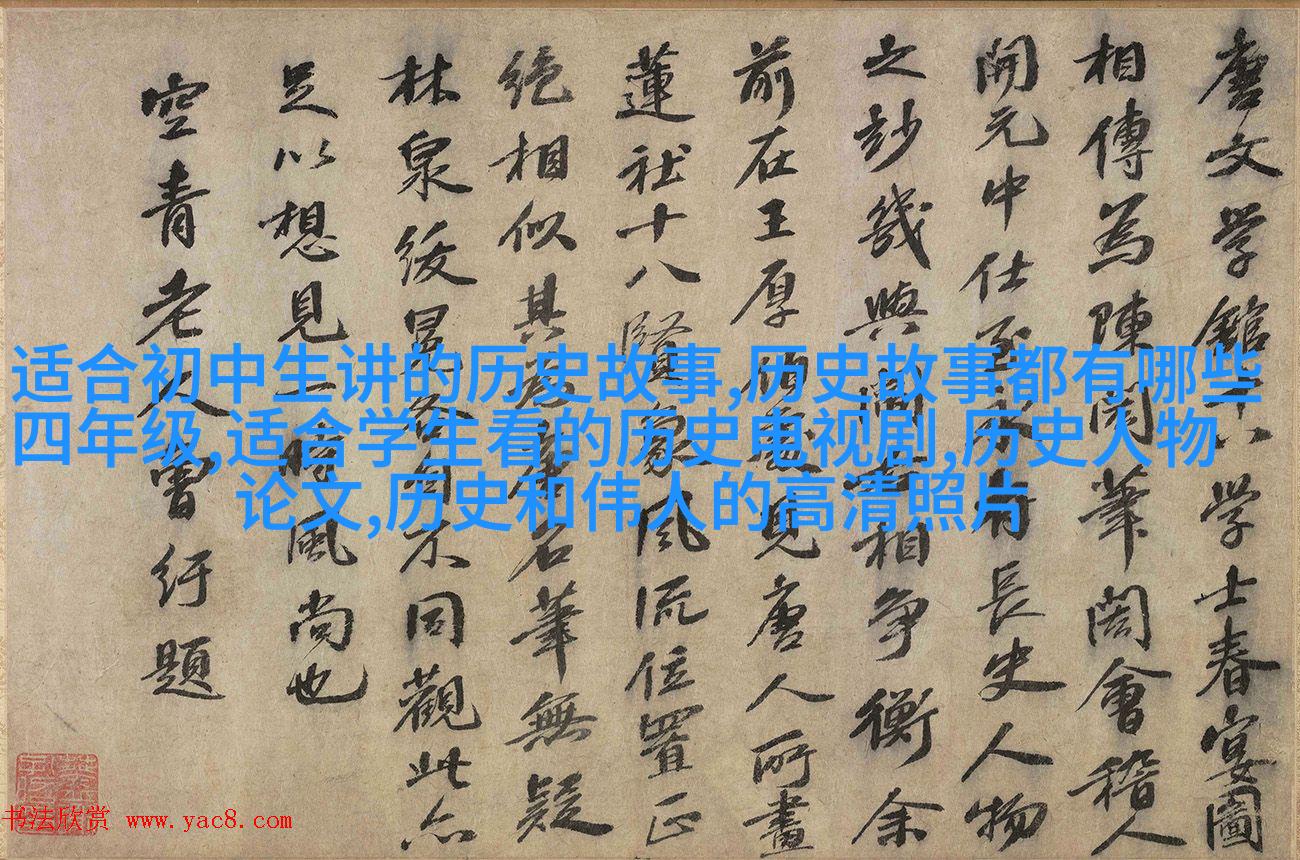 唐文学館十八学士春宴圖
相傳為陳閎筆閎會稽人
開元中仕至永府長史人物
之玅幾與閻相争衡余
前在王厚伯處見唐人所畫
蓮社十八賢象風流位置正
绝相似其為名筆無疑
林泉绥冕各自不同觀此亦
足以想見一時風尚也
空青老人曾纡題
适合初中生讲的历史故事,历史故事都有哪些
四年级,适合学生看的历史电视剧,历史人物
论文,历史和伟人的高清照片
书法欣赏 www.yac8.com